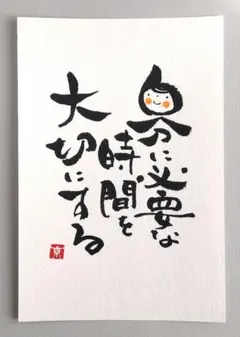 自分に必要な
時間を
大切にする